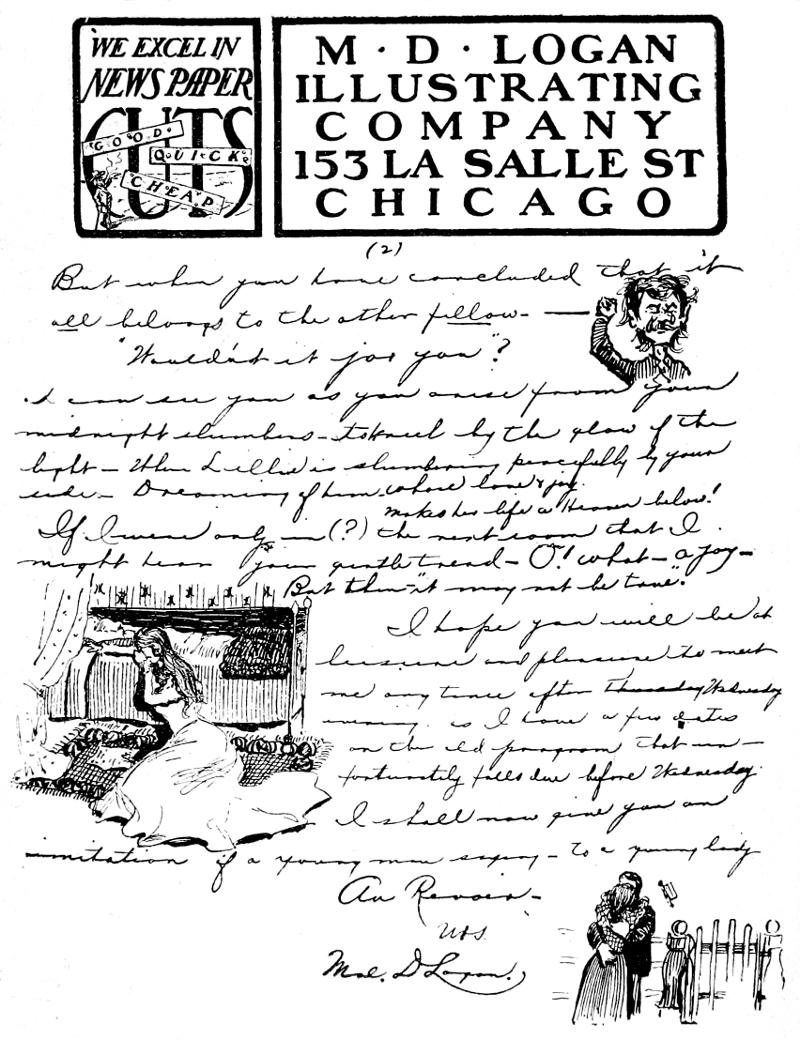 WE EXCEL IN
NEWSPAPER
CUTS
GOOD
QUICK
CHEAP
M · D · LOGAN
ILLUSTRATING
COMPANY
153 LA SALLE ST
CHICAGO
(2)
But when you have concluded that it
all belongs to the other fellow — —
"Wouldn't it jar you"?
I can see you as you arise from your
midnight slumbers — to kneel by the glow of the
light — When Lillie is slumbering peacefully by your
side — Dreaming of him whose love & joy
makes her life a Heaven below!
If I were only in (?) the next room that I
might hear your gentle tread — O! what — a joy —
But then "it may not be
I hope you will be at
leisure and pleasure to meet
me any time after Thursday Wednesday
evening as I have a few dates
on the old program that un-
fortunately falls due before Wednesday.
I shall now give you an
imitation of a young man saying — to a young lady
Au Revoir —
Mal. D Logan.